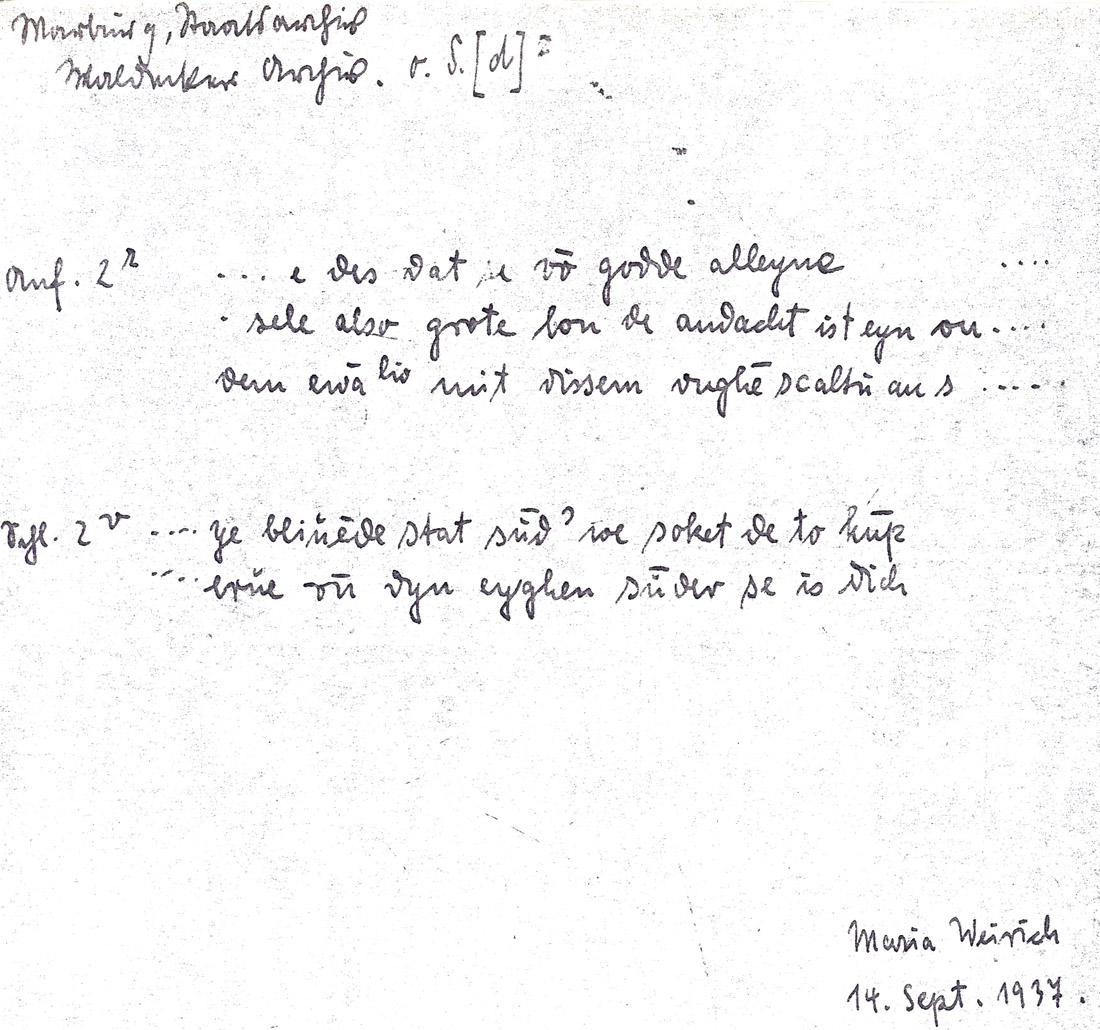 Marburg, Staatsarchiv
Waldecker Archiv. o. S. [d]
Anf. 2r .... e des dat e vō godde alleyne ....
sele also grote lon de andacht ist eyn on....
dem ewā lio mit dissem vnghē scaltū an s .....
Schl. 2v .... ye bliuēde stat sūd? we soket de to kūp
.... erue vū dyn eyghen sūder se is dich
Maria Weirich
14. Sept. 1937.